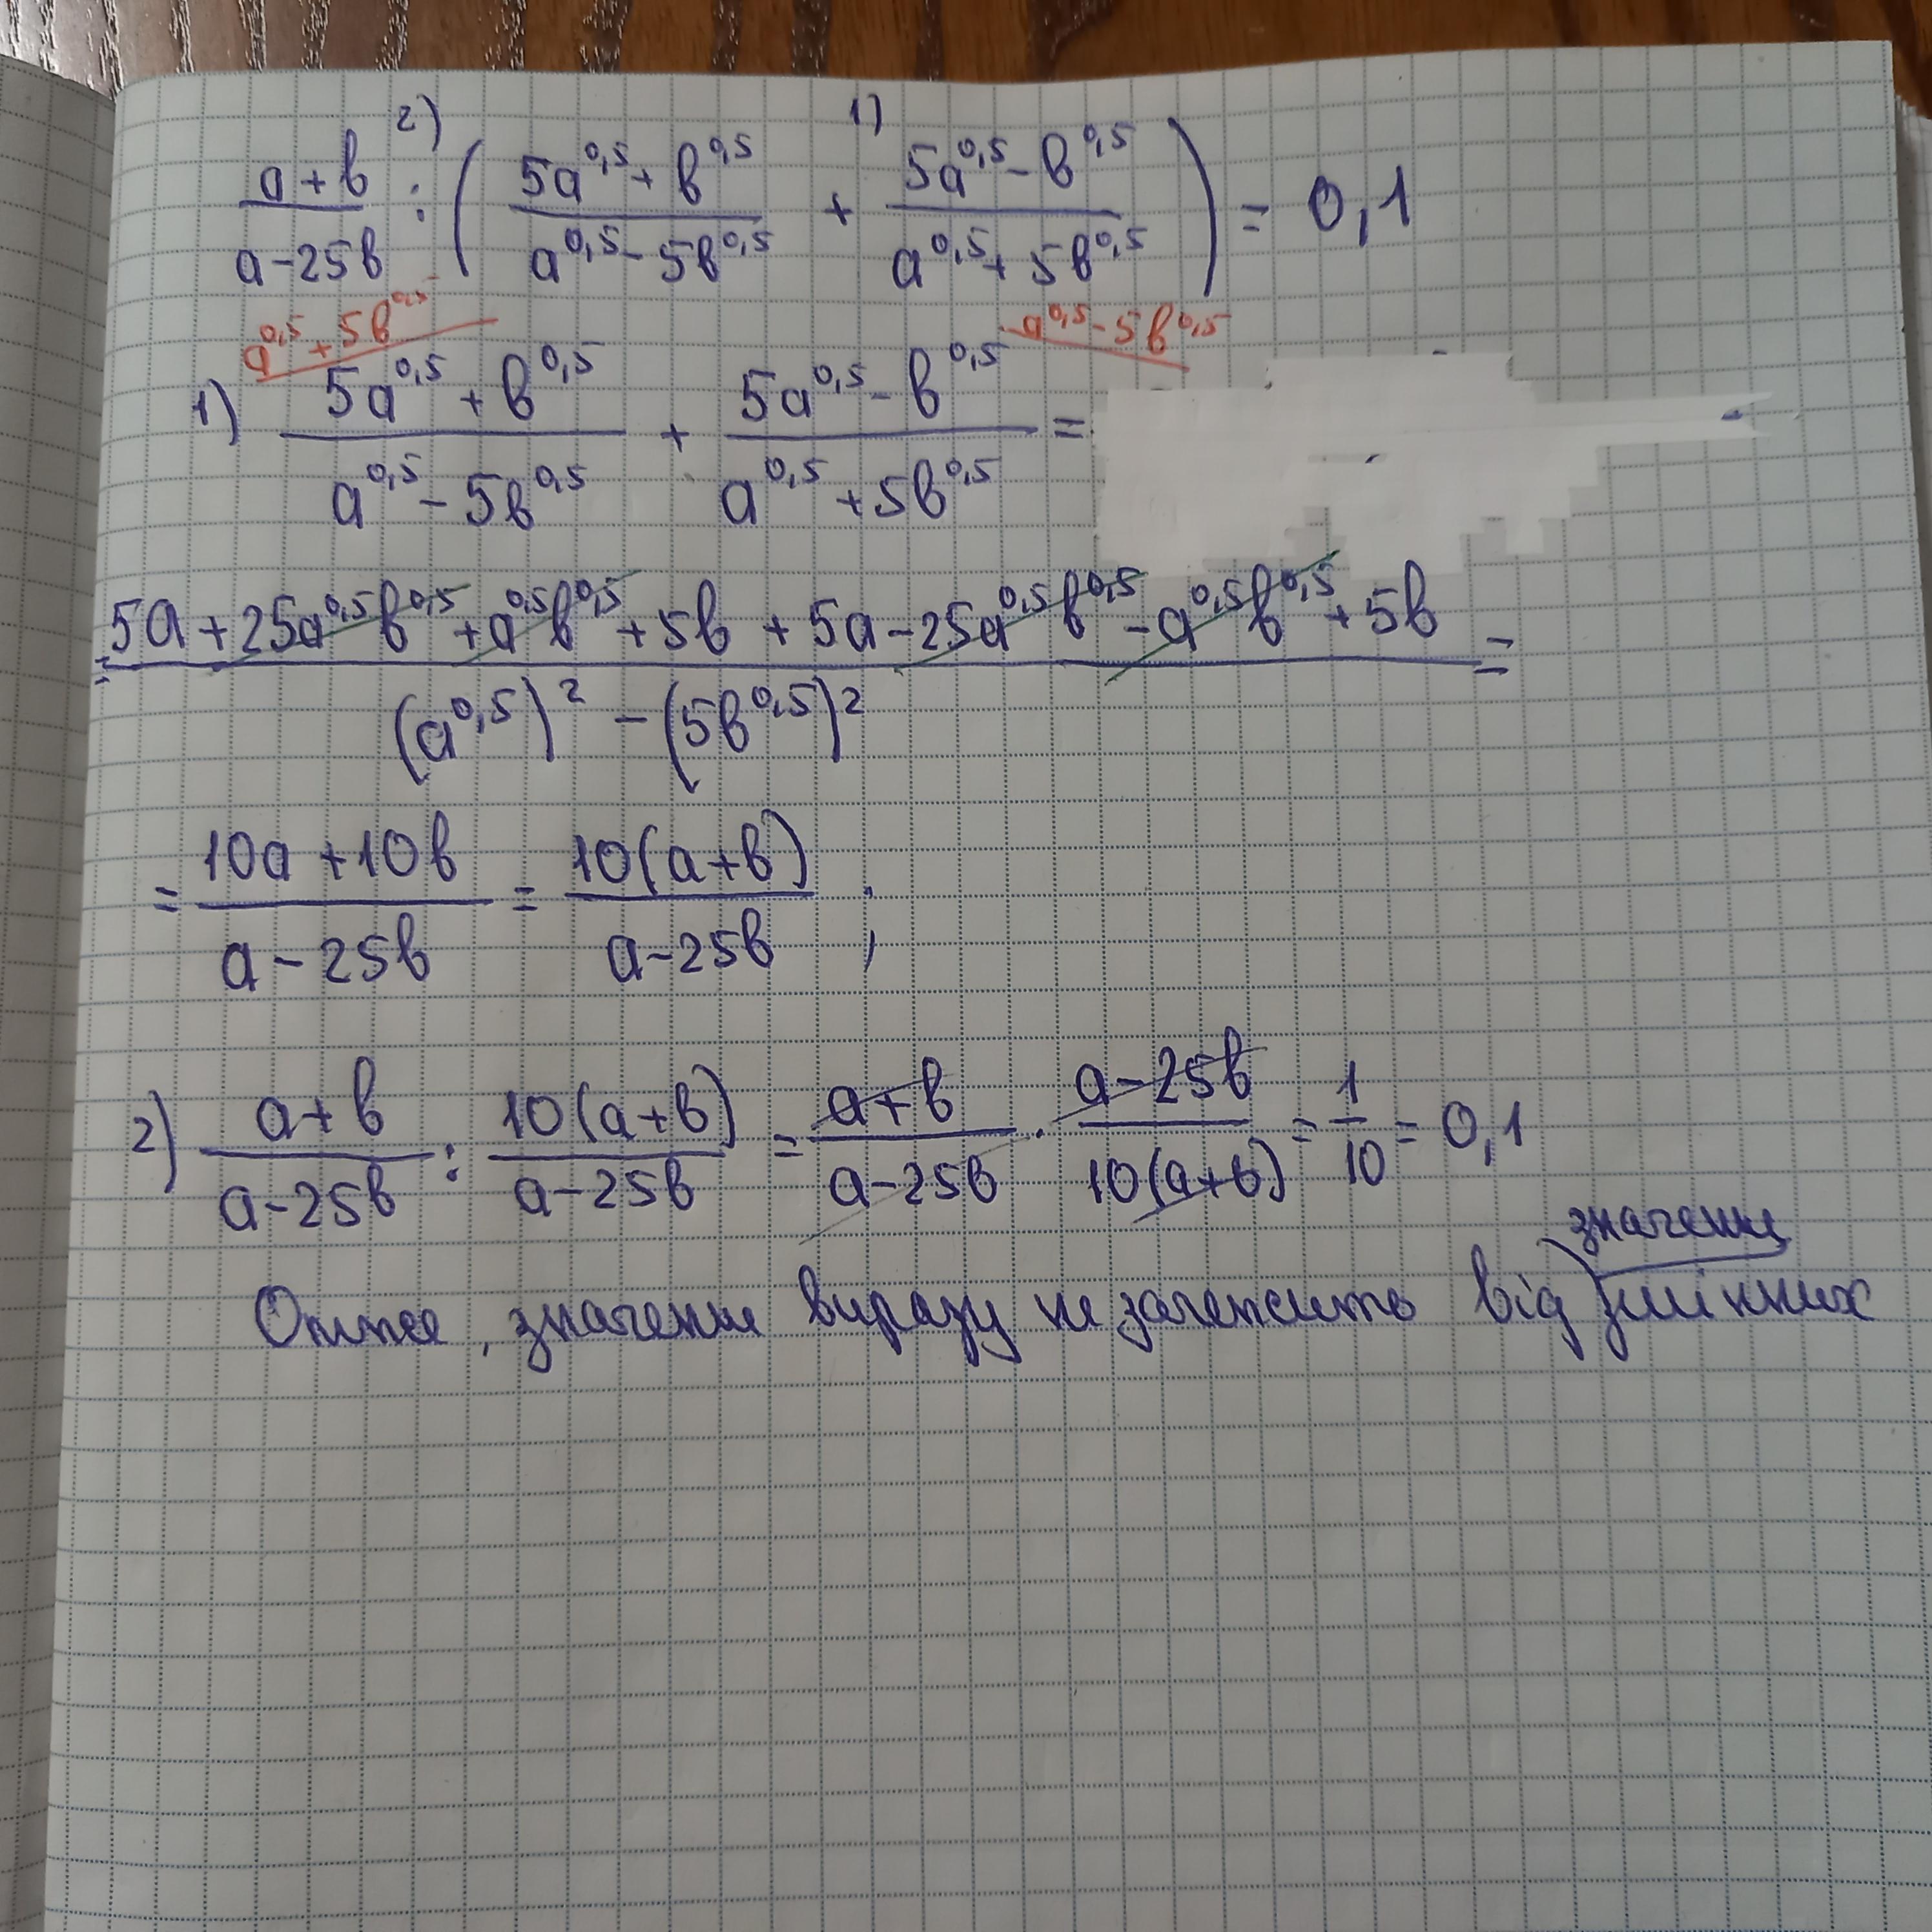 2) 1)
(a+b)/(a-25b) : ((5a^0,5 + b^0,5)/(a^0,5 - 5b^0,5) + (5a^0,5 - b^0,5)/(a^0,5 + 5b^0,5)) = 0,1
a^0,5 + 5b^0,5 a^0,5 - 5b^0,5
1) (5a^0,5 + b^0,5)/(a^0,5 - 5b^0,5) + (5a^0,5 - b^0,5)/(a^0,5 + 5b^0,5) =
= (5a + 25a^0,5 b^0,5 + a^0,5 b^0,5 + 5b + 5a - 25a^0,5 b^0,5 - a^0,5 b^0,5 + 5b)/((a^0,5)^2 - (5b^0,5)^2) =
= (10a + 10b)/(a - 25b) = 10(a+b)/(a-25b) ;
2) (a+b)/(a-25b) : 10(a+b)/(a-25b) = (a+b)/(a-25b) · (a-25b)/(10(a+b)) = 1/10 = 0,1
значень
Отже, значення виразу не залежить від змінних